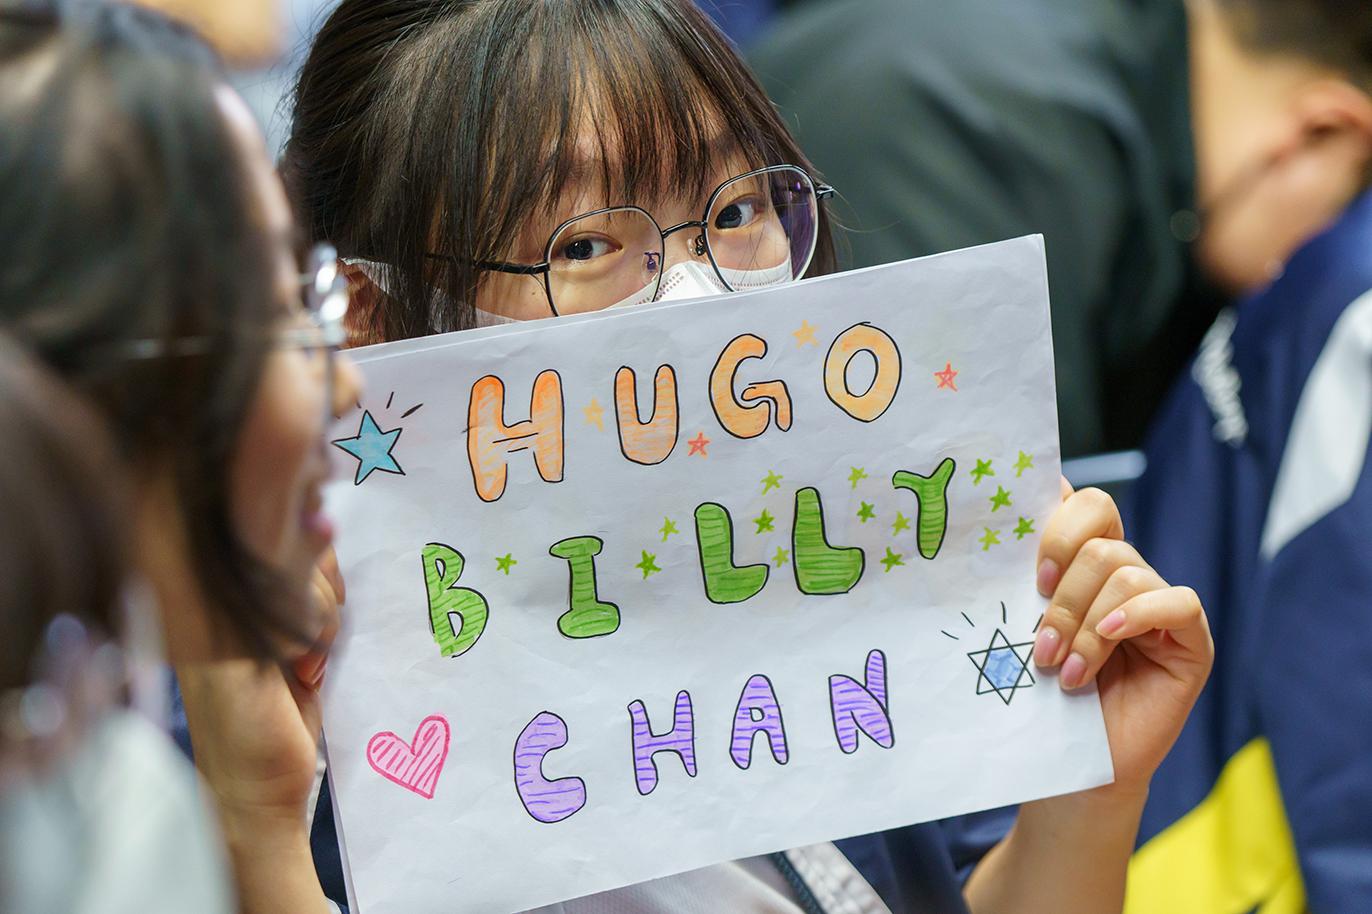 HUGO
BILLY
CHAN